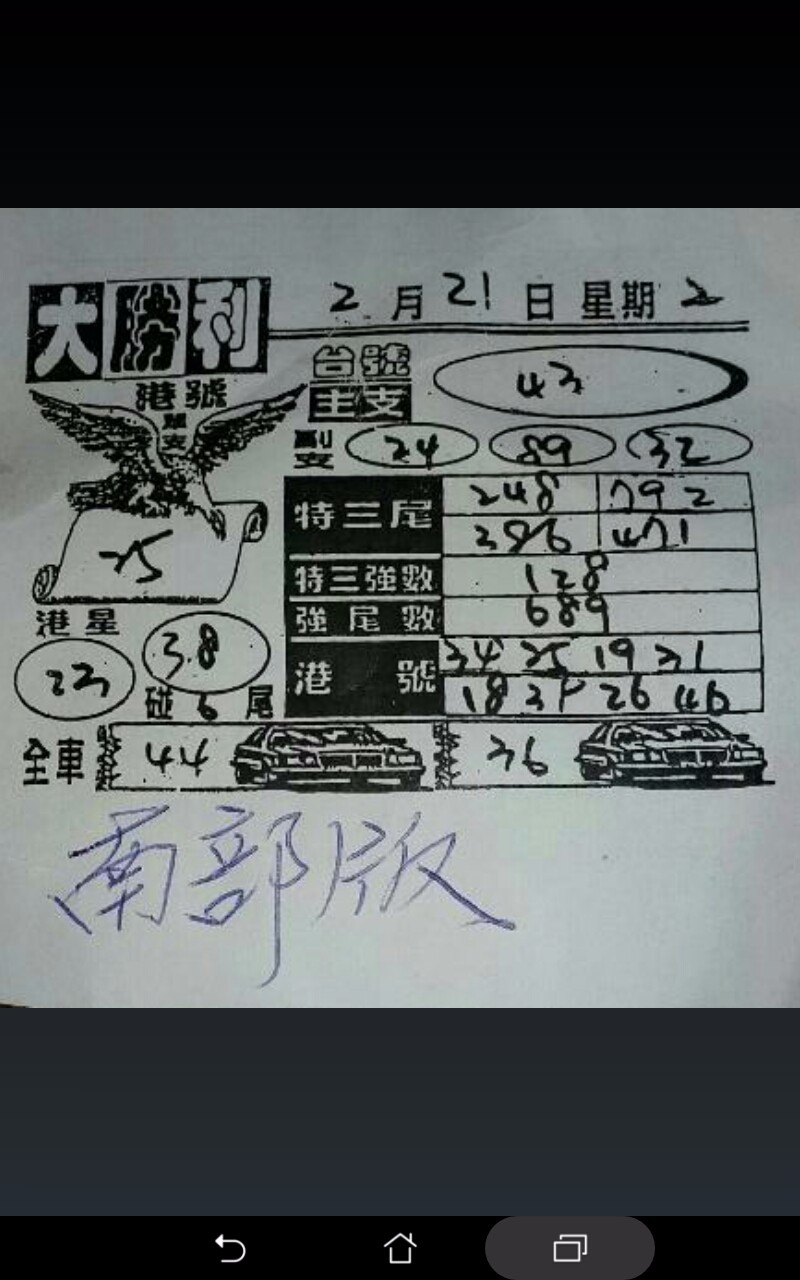 大勝利
2月21日星期2
台號
主支
43
副支 24 89 32
港號
單支
特三尾 248 792
386 471
特三強數 128
強尾數 689
港星
23
3.8
碰6尾
港號 34 35 19 31
18 26 46
全車 44 36
南部版